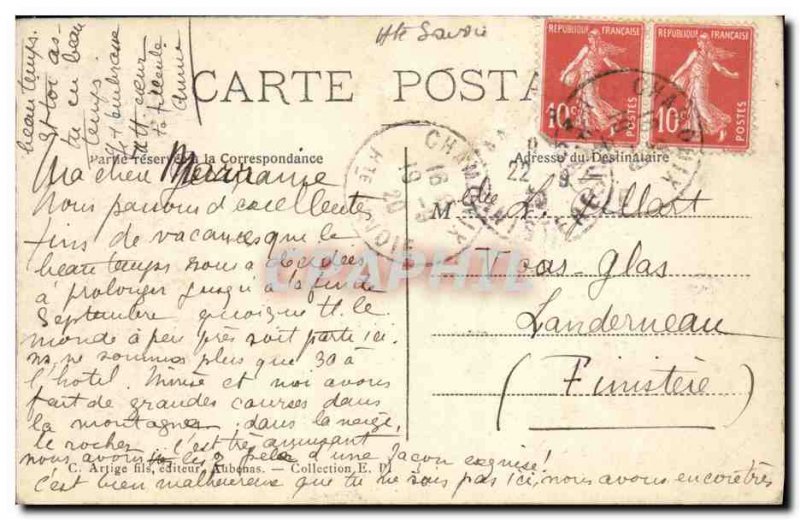 Hte Savoie
CARTE POSTALE
REPUBLIQUE FRANÇAISE
10c POSTES
REPUBLIQUE FRANÇAISE
10c POSTES
CHAMONIX
HTE SAVOIE
Partie réservée à la Correspondance
Adresse du Destinataire
Ma chère Marraine
Nous passons d'excellentes
fins de vacances que le
beau temps nous a décidées
à prolonger jusqu'à la fin de
Septembre quoique tt le
monde à peu près soit parti ici.
ns ne sommes plus que 30 à
l'hôtel. et moi avons
fait de grandes courses dans
la montagne, dans la neige,
le rocher c'est très amusant
nous avons d'une façon exquise!
c'est bien malheureux que tu ne sois pas ici, nous avons encore très
beau temps.
et toi as-
tu eu beau
temps.
Mlle
Landerneau
(Finistère)
C. Artige fils, éditeur, Aubenas. — Collection E. M
CPAPHIL